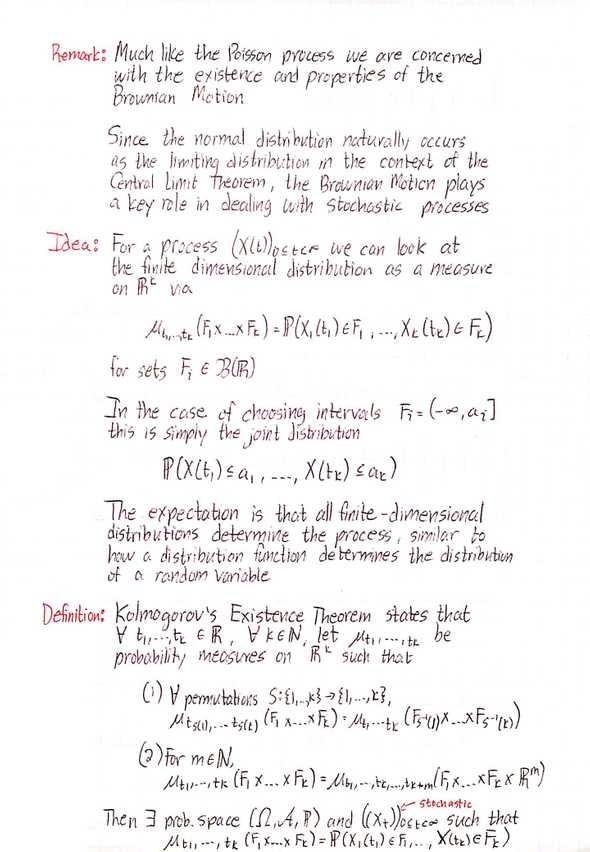 Remark: Much like the Poisson process we are concerned
with the existence and properties of the
Brownian Motion
Since the normal distribution naturally occurs
as the limiting distribution in the context of the
Central Limit Theorem, the Brownian Motion plays
a key role in dealing with stochastic processes
Idea: For a process (X(t))₀≤t<∞ we can look at
the finite dimensional distribution as a measure
on ℝᵏ via
μ_{t₁,...,tₖ}(F₁x...xFₖ) = ℙ(X₁(t₁)∈F₁, ..., Xₖ(tₖ)∈Fₖ)
for sets Fᵢ ∈ 𝓑(ℝ)
In the case of choosing intervals Fᵢ = (-∞, aᵢ]
this is simply the joint distribution
ℙ(X(t₁) ≤ a₁, ..., X(tₖ) ≤ aₖ)
The expectation is that all finite-dimensional
distributions determine the process, similar to
how a distribution function determines the distribution
of a random variable
Definition: Kolmogorov's Existence Theorem states that
∀ t₁,...,tₖ ∈ ℝ, ∀ k∈ℕ, let μ_{t₁,...,tₖ} be
probability measures on ℝᵏ such that
(1) ∀ permutations S:{1,..,k}→{1,...,k},
μ_{t_{S(1)},...,t_{S(k)}} (F₁x...xFₖ) = μ_{t₁...tₖ} (F_{S⁻¹(1)}x...xF_{S⁻¹(k)})
(2) For m∈ℕ,
μ_{t₁,...,tₖ} (F₁x...xFₖ) = μ_{t₁,...,tₖ,...,tₖ₊ₘ}(F₁x...xFₖxℝᵐ)
stochastic
Then ∃ prob. space (Ω,𝒜,ℙ) and ((Xₜ))₀≤t<∞ such that
μ_{t₁,...,tₖ} (F₁x...xFₖ) = ℙ(X(t₁)∈F₁,.., X(tₖ)∈Fₖ)